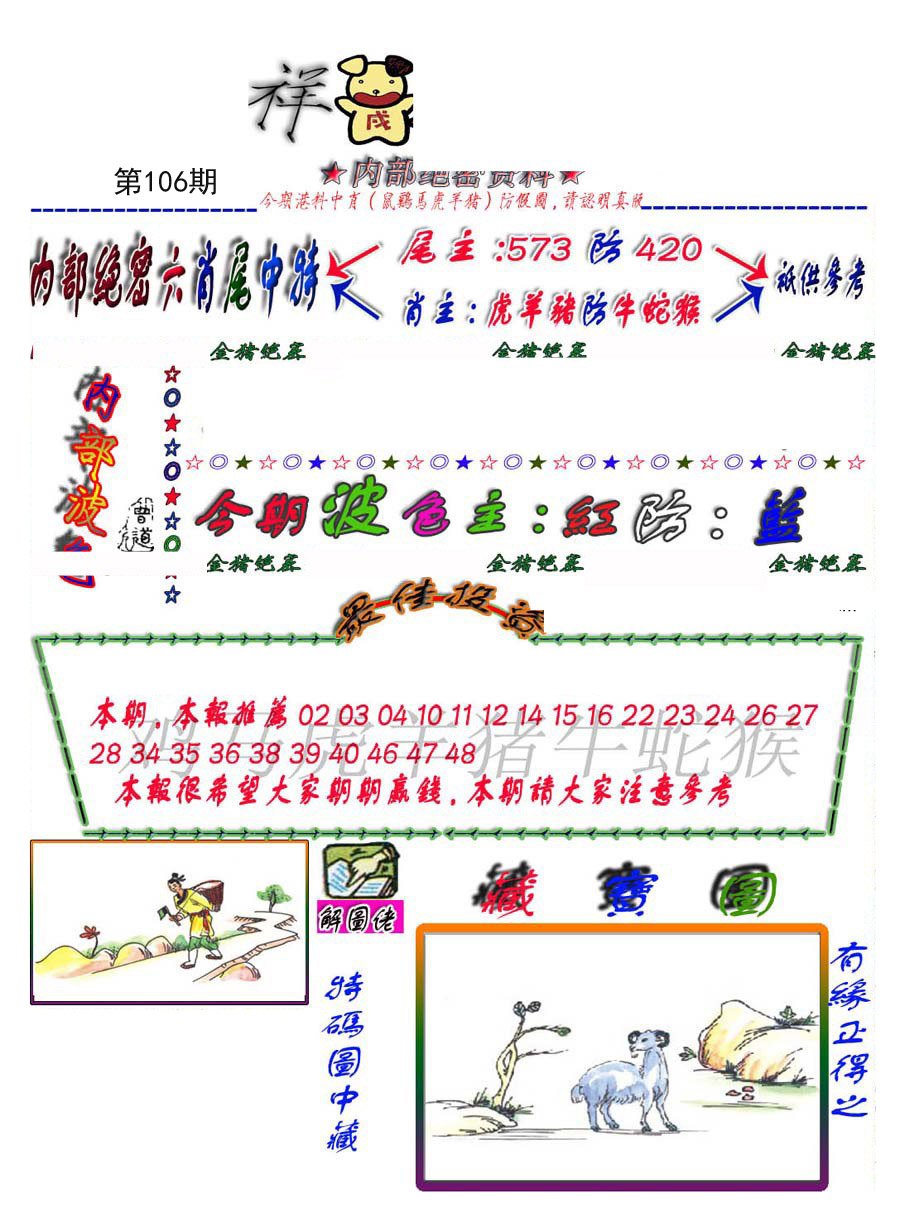 祥
戌
第106期
★内部绝密资料★
今期港料中肖(鼠鷄馬虎羊猪)防假圖,請認明真版
内部絶密六肖尾中特
尾主:573 防 420
肖主:虎羊豬防牛蛇猴
祇供參考
金猪绝密 金猪绝密 金猪绝密
内部波色
曾道
☆◎★☆◎★☆◎★☆◎★☆◎★☆◎★☆◎★☆◎★☆◎★☆
今期波色主:紅防:藍
金猪绝密 金猪绝密 金猪绝密
最佳投
本期,本報推薦 02 03 04 10 11 12 14 15 16 22 23 24 26 27
28 34 35 36 38 39 40 46 47 48
鸡马虎羊猪牛蛇猴
本報很希望大家期期贏錢,本期請大家注意參考
解圖佬
藏寶圖
特碼圖中藏
有緣正得之